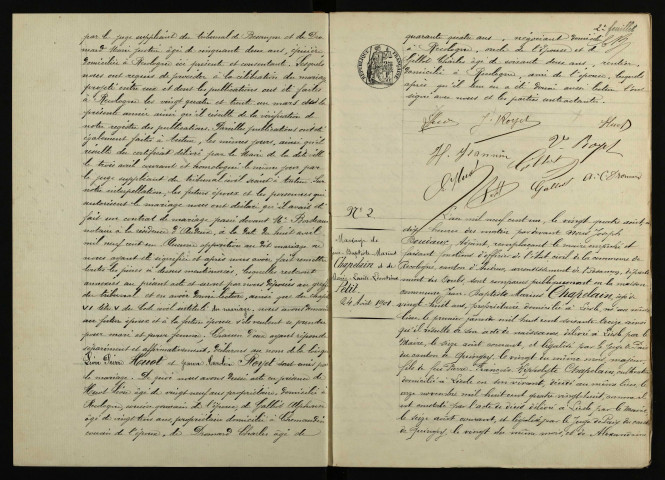 par le juge suppléant du tribunal de Besançon et de Do-
mard Marie Justine âgée de cinquante deux ans, épicière
domiciliée à Reulogne ici présente et consentante. Lesquels
nous ont requis de procéder à la célébration du mariage
projeté entre eux et dont les publications ont été faites
à Reulogne les vingt quatre et trente un mars de la
présente année ainsi qu'il résulte de la vérification de
notre registre des publications. Pareilles publications ont été
également faites à Autun, les mêmes jours, ainsi qu'il
résulte du certificat délivré par le Maire de la dite ville
le trois avril courant et homologué le même jour par
le juge suppléant du tribunal civil séant à Autun. Sur
notre interpellation, les futurs époux et les personnes qui
autorisent le mariage nous ont déclaré qu'il avait été
fait un contrat de mariage passé devant Me
notaire à la résidence d' à la date du huit avril
mil neuf cent un. Aucune opposition au dit mariage ne
nous ayant été signifiée et après nous avoir fait remettre
toutes les pièces à dessus mentionnées, lesquelles resteront
annexées au présent acte pour être déposées au greffe
du tribunal et en avoir donné lecture, ainsi que du chapitre
VI titre V du Code civil intitulé du mariage, nous avons demandé
au futur époux et à la future épouse s'ils veulent se prendre
pour mari et pour femme. Chacun d'eux ayant répondu
séparément et affirmativement, déclarons au nom de la loi que
Huot et Royet sont unis par
le mariage. De quoi nous avons dressé acte en présence de
Huot âgé de vingt neuf ans propriétaire, domicilié à
Reulogne, cousin germain de l'époux, de Gallot Alphonse
âgé de vingt huit ans propriétaire domicilié à
cousin de l'époux, de Domard Charles âgé de
2e feuillet
quarante quatre ans, négociant domicilié
à Reulogne, oncle de l'épouse et de
Gallot Charles âgé de soixante deux ans, rentier
domicilié à Reulogne, ami de l'épouse, lesquels
après qu'il leur en a été donné aussi lecture l'ont
signé avec nous et les parties contractantes.
Huot J. Royet Huot
H. Jeannin Ve Royet
Gallot
Petit Gallot
No 2
Mariage de
Jean Baptiste Marius
Chapelain et de
Marie Louise
Petit
24 Août 1901
L'an mil neuf cent un, le vingt quatre août à
dix heures du matin par devant Nous Joseph
Adjoint, remplaçant le maire empêché et
faisant fonctions d'officier de l'état civil de la commune de
Reulogne, canton d'Audeux, arrondissement de Besançon, départe-
ment du Doubs, sont comparus publiquement en la maison
commune Jean Baptiste Marius Chapelain, âgé de
vingt huit ans, propriétaire demeurant à Lesle où il est
né le premier janvier mil huit cent soixante treize ainsi
qu'il résulte de son acte de naissance délivré à Lesle par le
Maire, le seize août courant, et légalisé par le Juge de Paix
du canton de Quingey, le vingt du même mois, majeur,
fils de feu Pierre François Hippolyte Chapelain cultivateur
domicilié à Lesle en son vivant, décédé au même lieu, le
onze novembre mil huit cent quatre vingt huit, comme il
est constaté par l'acte de décès délivré à Lesle par le maire,
le seize août courant, et légalisé par le Juge de Paix du canton
de Quingey, le vingt du même mois, et de Alexandrine